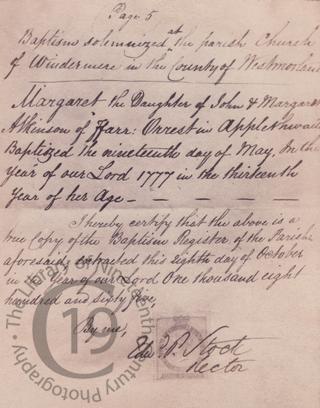 Page 5
Baptism solemnized at the parish Church
of Windermere in the County of Westmorland
Margaret the Daughter of John & Margaret
Atkinson of Farr: Orrest in Applethwaite
Baptized the nineteenth day of May. In the
Year of our Lord 1777 in the thirteenth
Year of her Age
I hereby certify that the above is a
true Copy of the Baptism Register of the Parish
aforesaid, extracted this Eighth day of October
in the Year of our Lord One thousand eight
hundred and sixty five,
By me,
Edw. P. Stock
Rector
The Library of Nineteenth-Century Photography
C 19